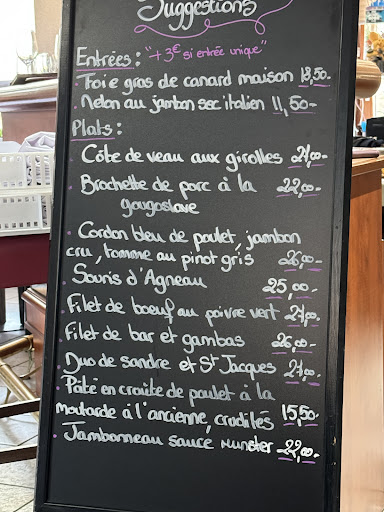 Suggestions
Entrées : "+3€ si entrée unique"
- Foie gras de canard maison 18,50.-
- Melon au jambon sec italien 11,50.-
Plats :
- Côte de veau aux girolles
- Brochette de porc à la 22,00.-
yougoslave
- Cordon bleu de poulet, jambon
cru, tomme au pinot gris 26,00.-
- Souris d'Agneau 25,00.-
- Filet de boeuf au poivre vert
- Filet de bar et gambas 26,00.-
- Duo de sandre et St Jacques
- Pâté en croûte de poulet à la
moutarde à l'ancienne, crudités 15,50.-
- Jambonneau sauce Munster 22,00.-